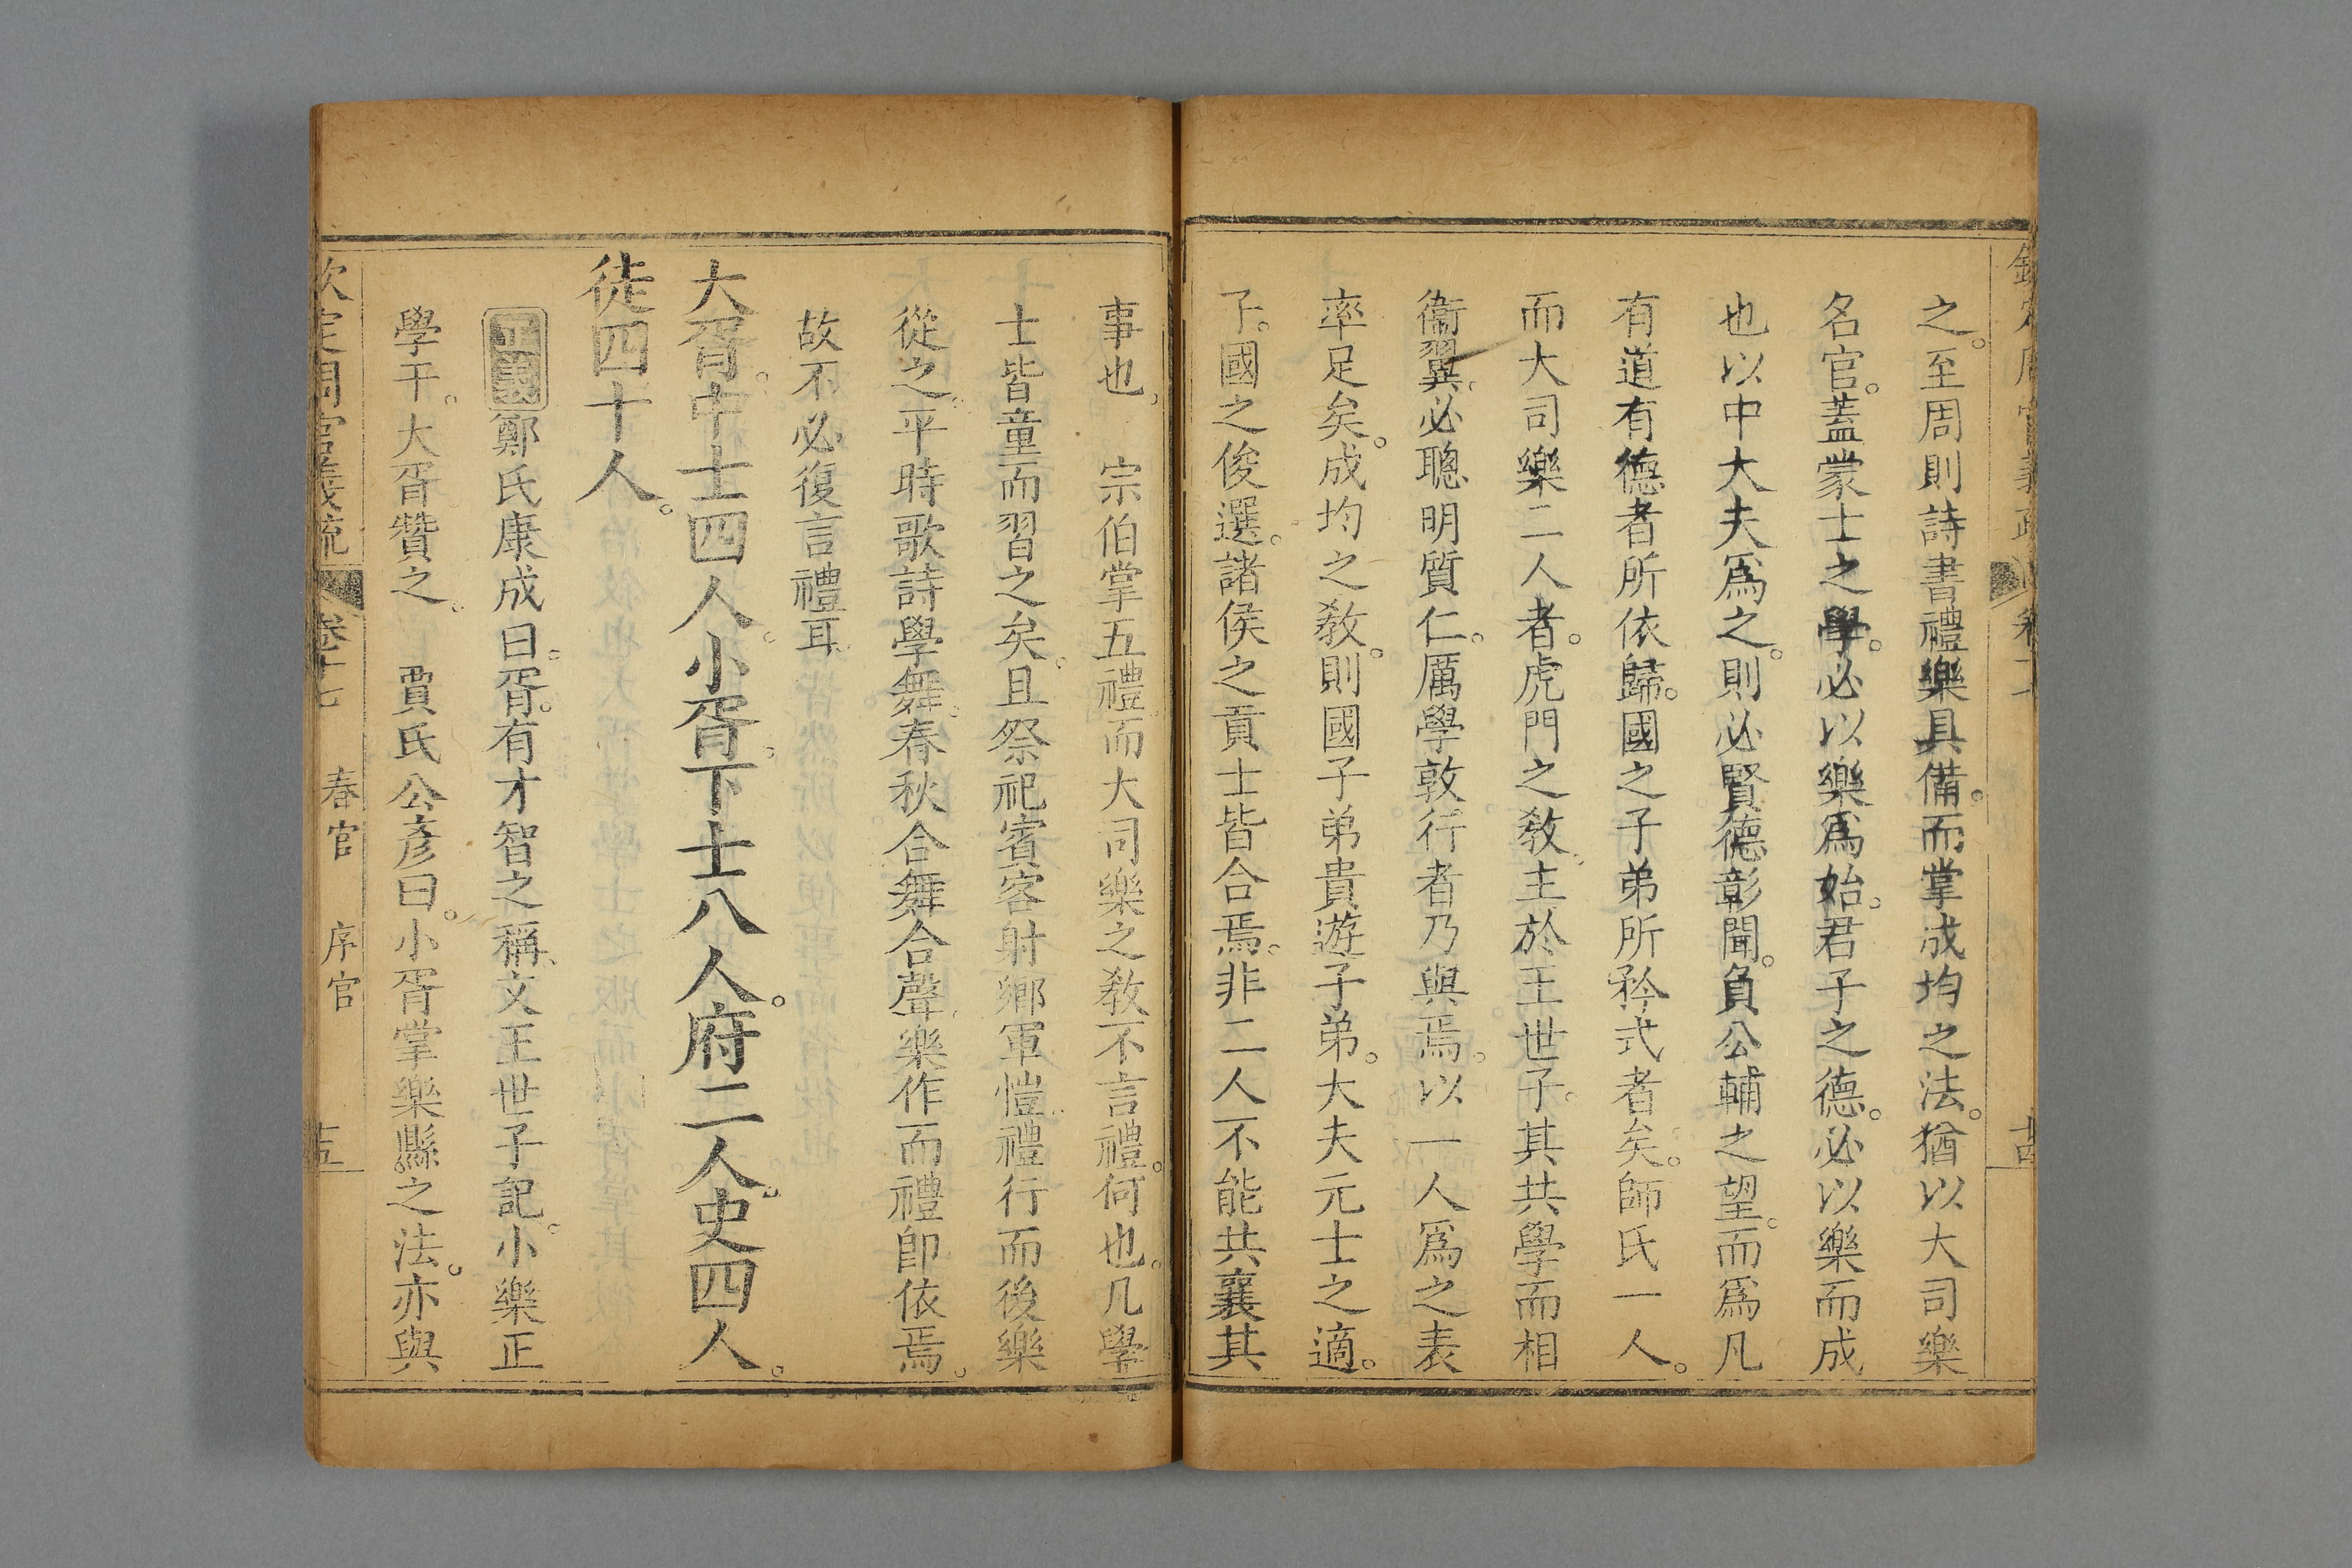 之。至周則詩書禮樂具備。而掌成均之法。猶以大司樂
名官。蓋蒙士之學。必以樂爲始。君子之德。必以樂而成
也以中大夫爲之。則必賢德彰聞。負公輔之望。而爲凡
有道有德者所依歸。國之子弟所矜式者矣。師氏一人。
而大司樂二人者。虎門之敎。主於王世子。其共學而相
衞翼。必聰明質仁。厲學敦行者乃與焉。以一人爲之表
率足矣。成均之敎。則國子弟貴遊子弟。大夫元士之適
子。國之俊選。諸侯之貢士皆合焉。非二人不能共襄其
事也。 宗伯掌五禮而大司樂之敎不言禮。何也。凡學
士皆童而習之矣。且祭祀賓客射鄉軍愷禮行而後樂
從之。平時歌詩學舞。春秋合舞合聲。樂作而禮卽依焉。
故不必復言禮耳
大胥中士四人。小胥。下士八人。府二人。史四人。
徒四十人。
正義鄭氏康成曰。胥。有才智之稱。文王世子記。小樂正
學干。大胥贊之。 賈氏公彥曰。小胥掌樂縣之法。亦與
欽定周官義疏 卷十七 春官 序官 十五